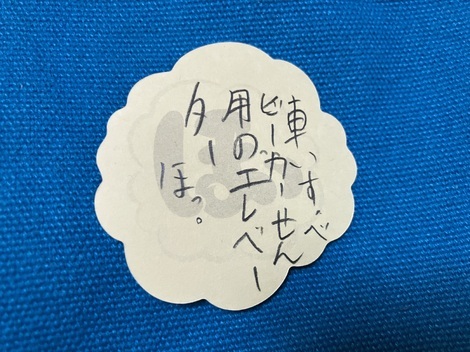 車いすべ
ビーカーせん
用のエレベー
ター
ほっ。